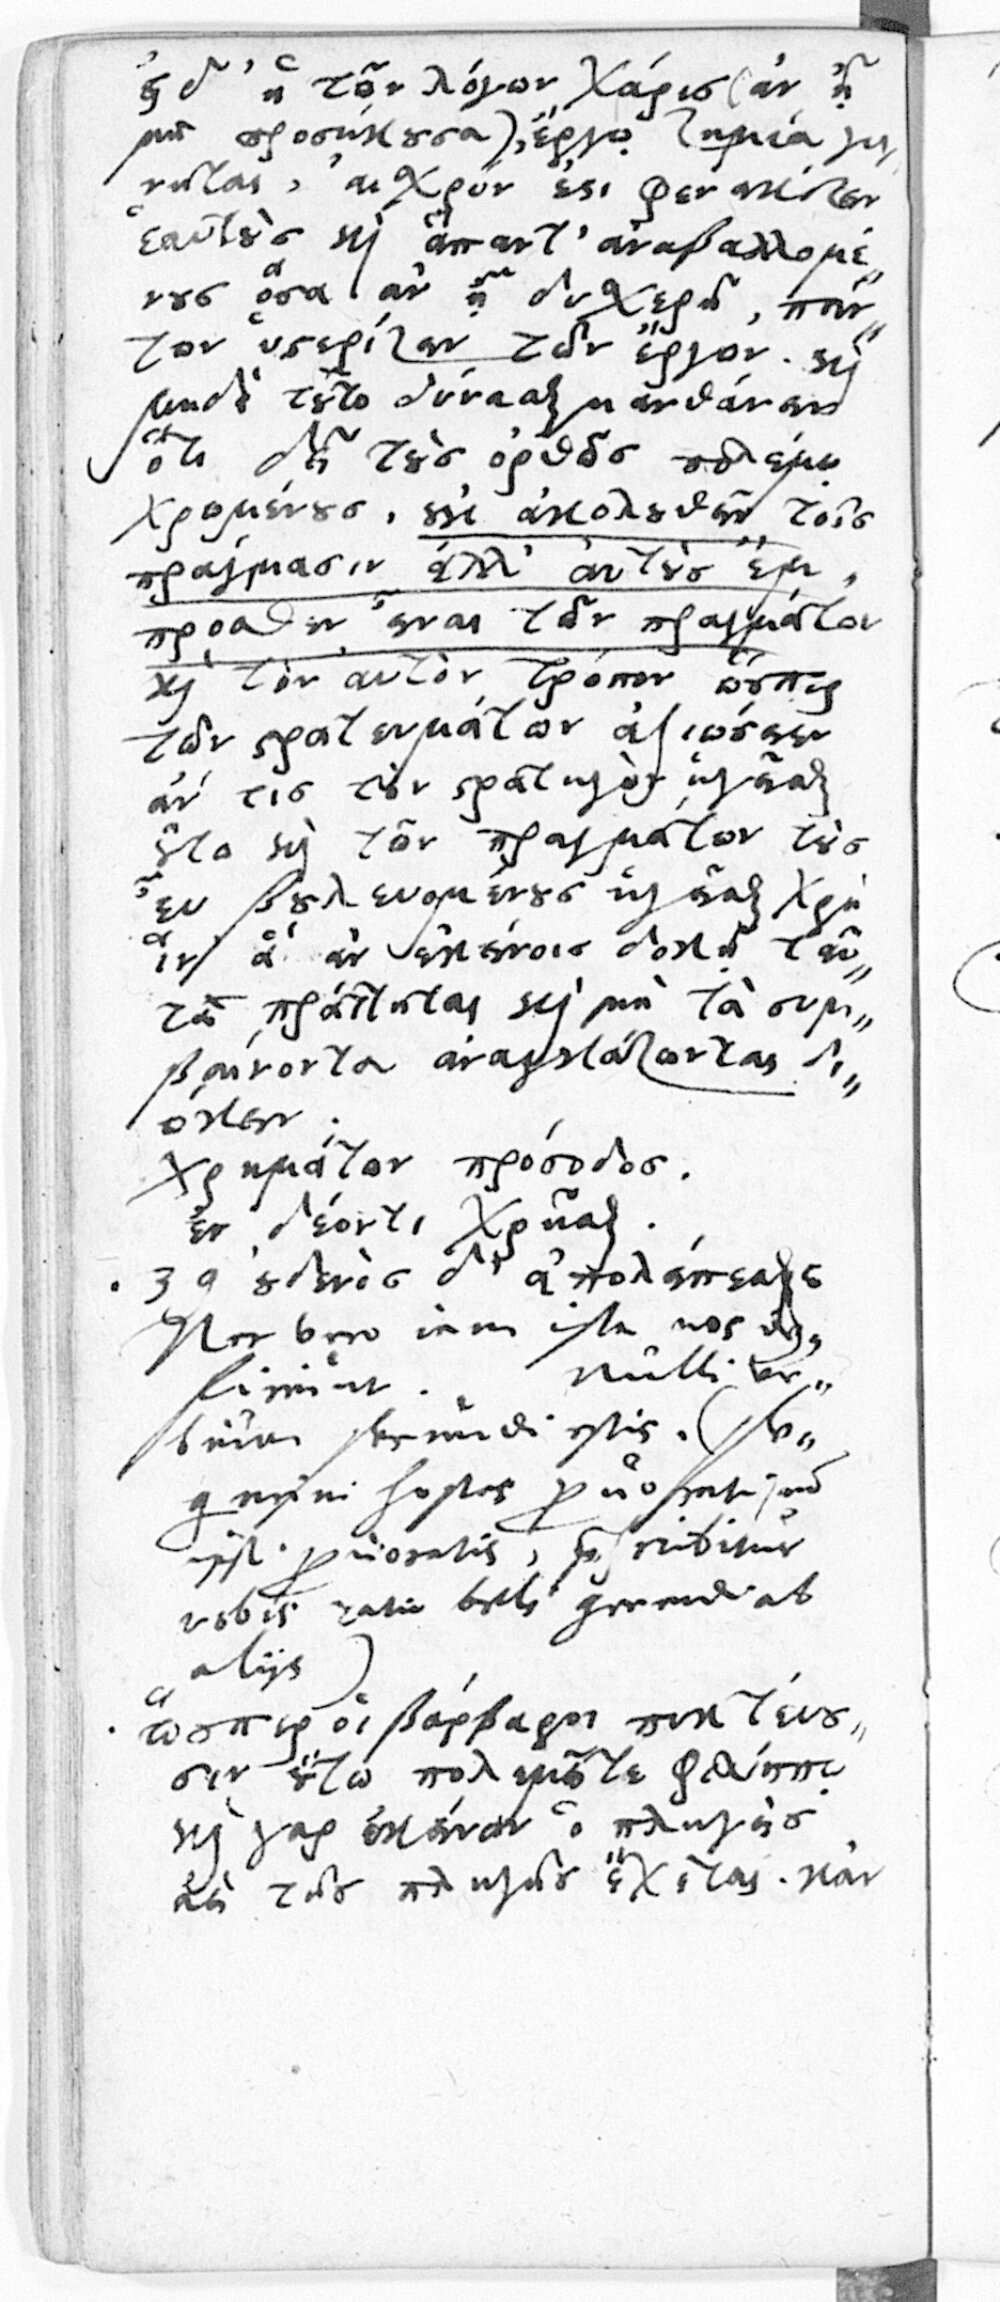 εἰ δ' ἡ τῶν λόγων χάρις (ἂν ᾖ
μὴ προσήκουσα), ἔργῳ ζημία γι
νηται, αἰσχρόν ἐστι φενακίζειν
ἑαυτοὺς καὶ ἅπαντ' ἀναβαλλομέ
νους ὅσα ἂν ᾖ δυσχερῆ, πάν
των ὑστερίζειν τῶν ἔργων. καὶ
μηδὲ τοῦτο δύνασθαι μανθάνειν
ὅτι δεῖ τοὺς ὀρθῶς πολέμῳ
χρωμένους, οὐκ ἀκολουθεῖν τοῖς
πράγμασιν ἀλλ' αὐτοὺς ἔμ,
προσθεν εἶναι τῶν πραγμάτων
καὶ τὸν αὐτὸν τρόπον ὥσπερ
τῶν στρατευμάτων ἀξιώσειεν
ἄν τις τὸν στρατηγὸν ἡγεῖσθαι
οὕτω καὶ τῶν πραγμάτων τοὺς
εὖ βουλευομένους ἡγεῖσθαι χρὴ
ἵν' ἃ ἂν ἐκείνοις δοκῇ ταῦ〃
τα πράττηται καὶ μὴ τὰ συμ〃
βαίνοντα ἀναγκάζωνται δι〃
ώκειν.
χρημάτων πρόσοδος.
ἐν δέοντι χρῆσθαι.
. 39 οὐδενὸς δ' ἀπολείπεσθε
Nec vero iam ista nos
sinunt. Nulli
estis. (
hostes
vobis ratio belli gerendi ab
alijs)
. ὥσπερ οἱ βάρβαροι πυκτεύου〃
σιν οὕτω πολεμεῖτε Φιλίππῳ
καὶ γὰρ ἐκείνων ὁ πληγεὶς
ἀεὶ τῆς πληγῆς ἔχεται. κἂν